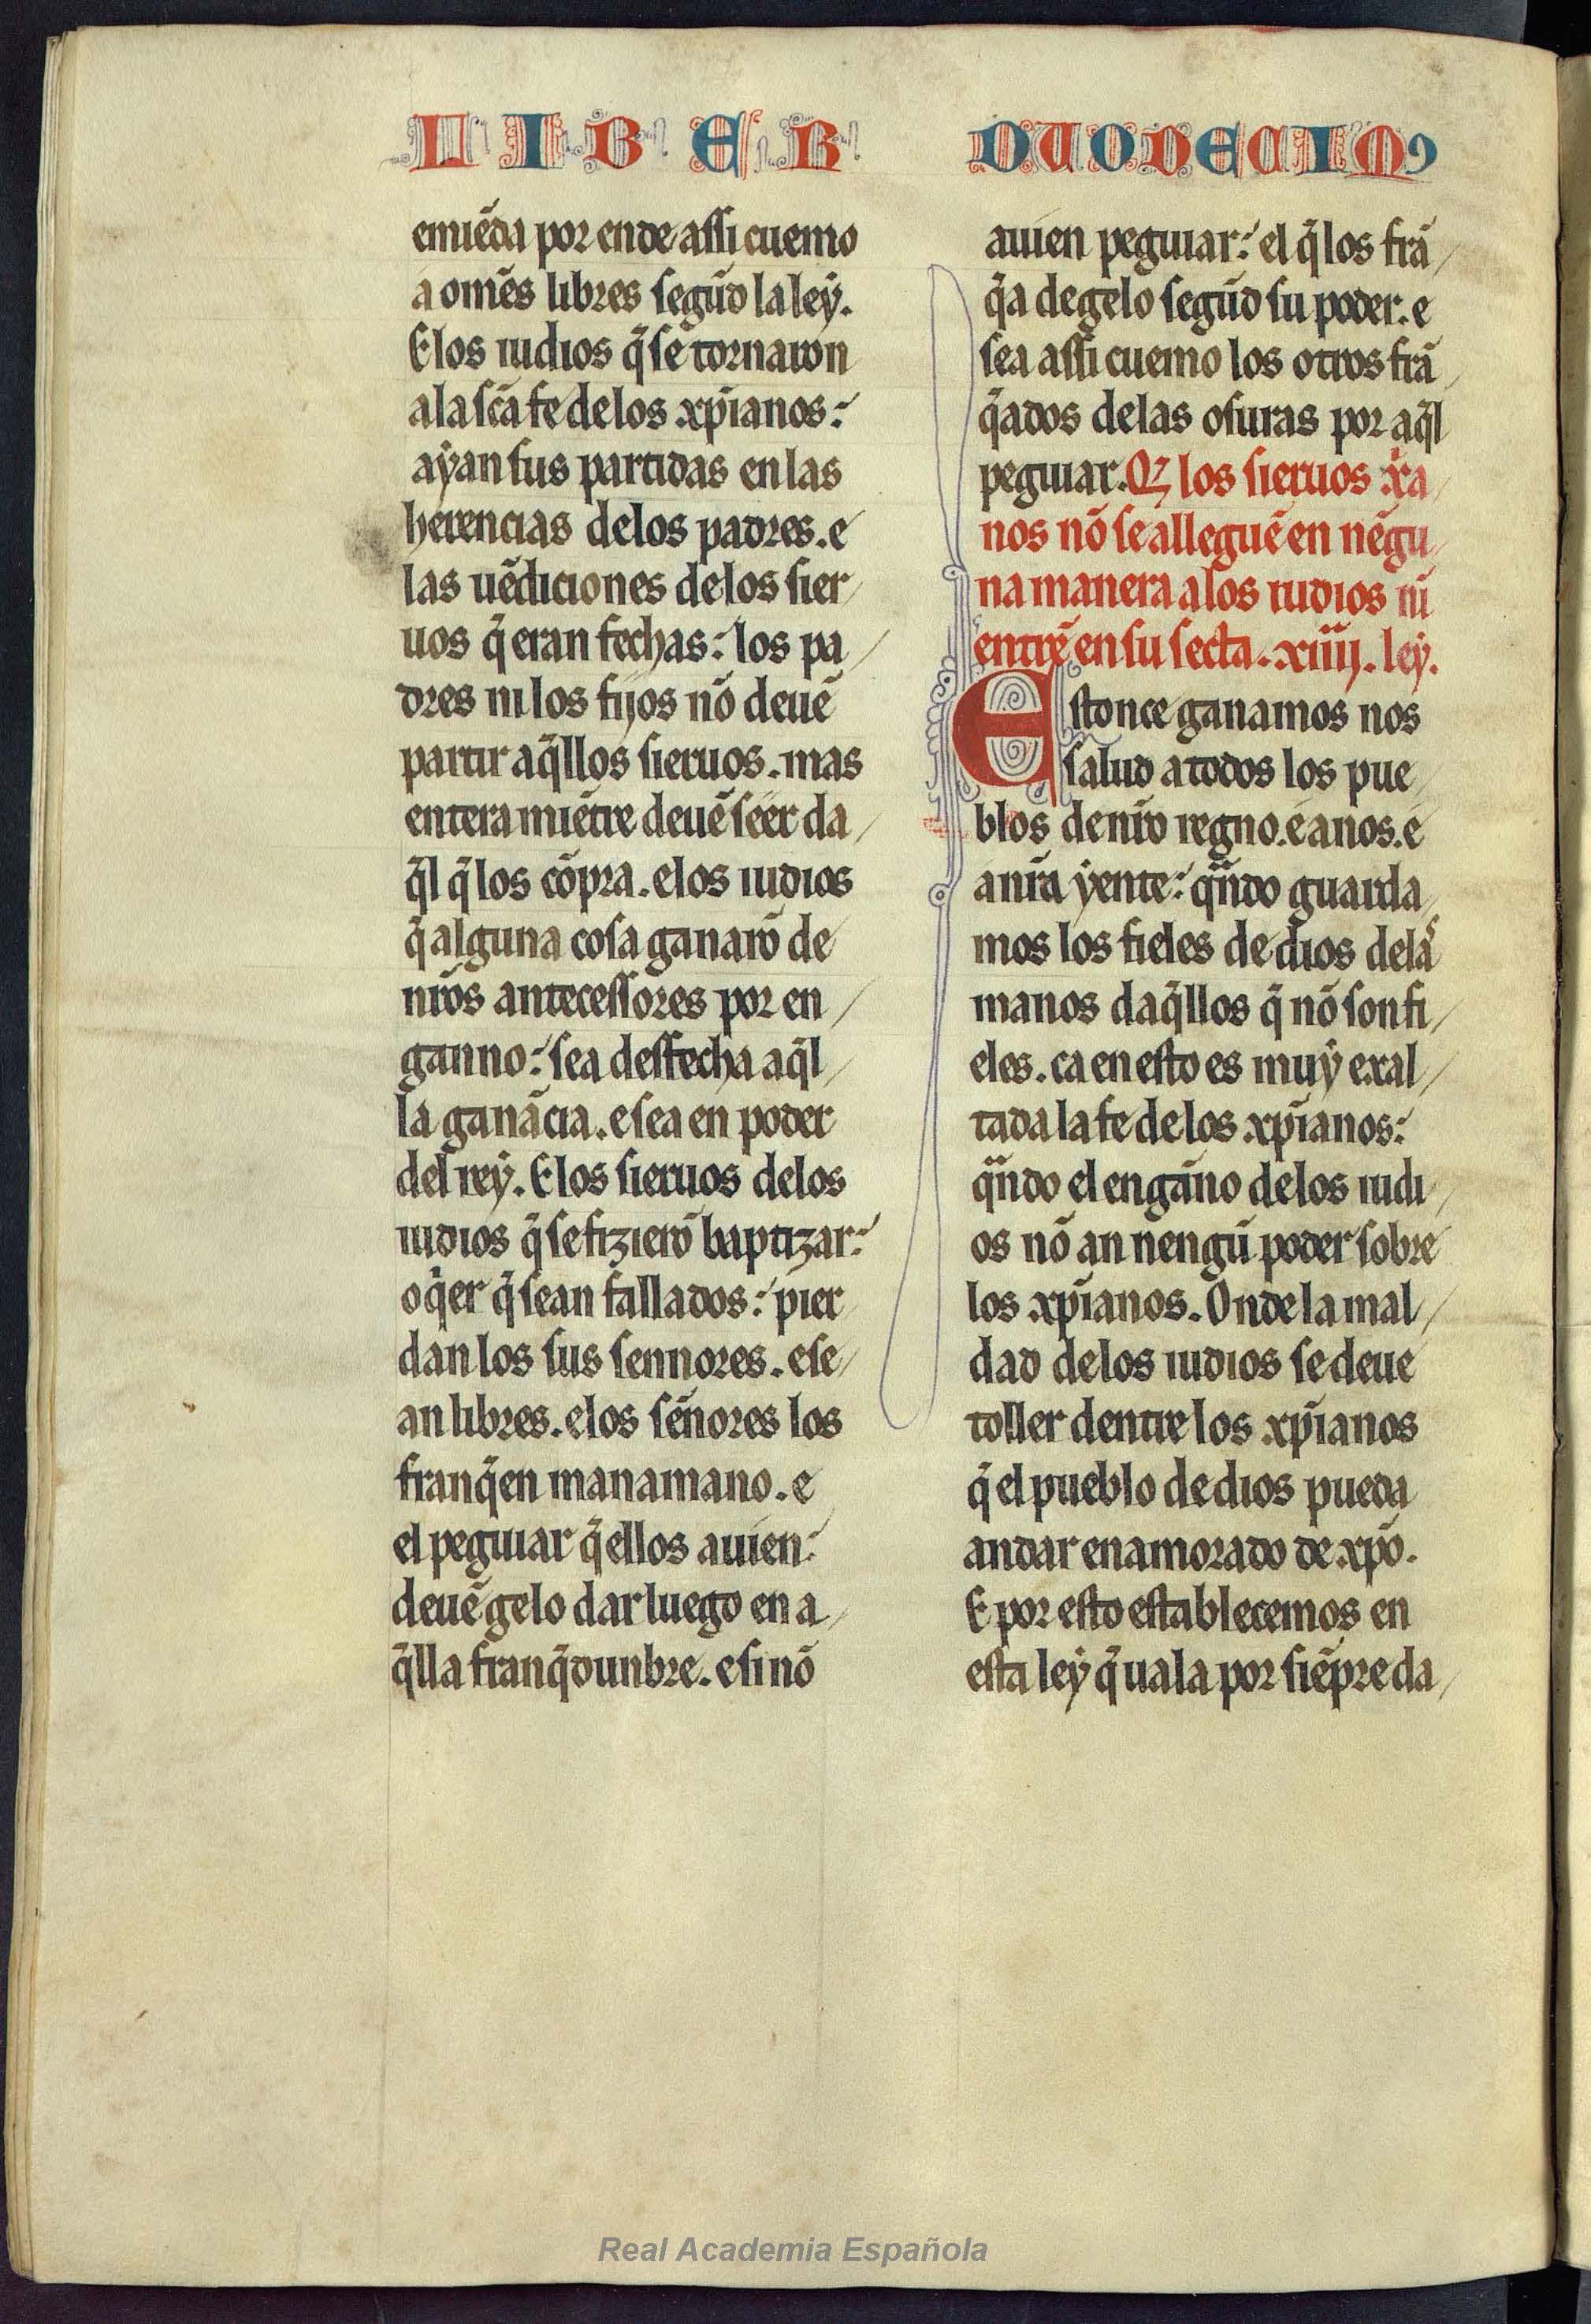 LIBER DUODECIMꝰ
emiēda por ende assi cuemo
a omēs libres segūd la leẏ.
E los iudios q̄ se tornaron
a la scā fe de los xp̄ianos:
aẏan sus partidas en las
herencias de los padres. e
las uēdiciones de los sier
uos q̄ eran fechas: los pa
dres ni los fijos nō deuē
partir aq̄llos sieruos. mas
entera miētre deuē seer da
q̄l q̄ los cōpra. e los iudios
q̄ alguna cosa ganarō de
nr̄os antecessores por en
ganno: sea desfecha aq̄l
la ganācia. e sea en poder
del reẏ. E los sieruos de los
iudios q̄ se fizierō baptizar:
o q̄er q̄ sean fallados: pier
dan los sus sennores. e se
an libres. e los sēnores los
franq̄en manamano. e
el peguiar q̄ ellos auien:
deuē gelo dar luego en a
q̄lla franq̄dunbre. e si nō
auien peguiar: el q̄ los frā
q̄a de gelo segūd su poder. e
sea assi cuemo los otros frā
q̄ados de las osuras por aq̄l
peguiar. Qȝ los sieruos xr̄a
nos nō se alleguē en nēgu
na manera a los iudios nī
entrē en su secta. xiiij. ley.
Estonce ganamos nos
salud a todos los pue
blos de nr̄o regno. e a nos. e
a nr̄a ẏente: qn̄do guarda
mos los fieles de dios de las
manos daq̄llos q̄ nō son fi
eles. ca en esto es muẏ exal
tada la fe de los xp̄ianos:
qn̄do el engāno de los iudi
os nō an nengū poder sobre
los xp̄ianos. Onde la mal
dad de los iudios se deue
toller dentre los xp̄ianos
q̄ el pueblo de dios pueda
andar enamorado de xp̄o.
E por esto establecemos en
esta leẏ q̄ uala por siēpre da
Real Academia Española